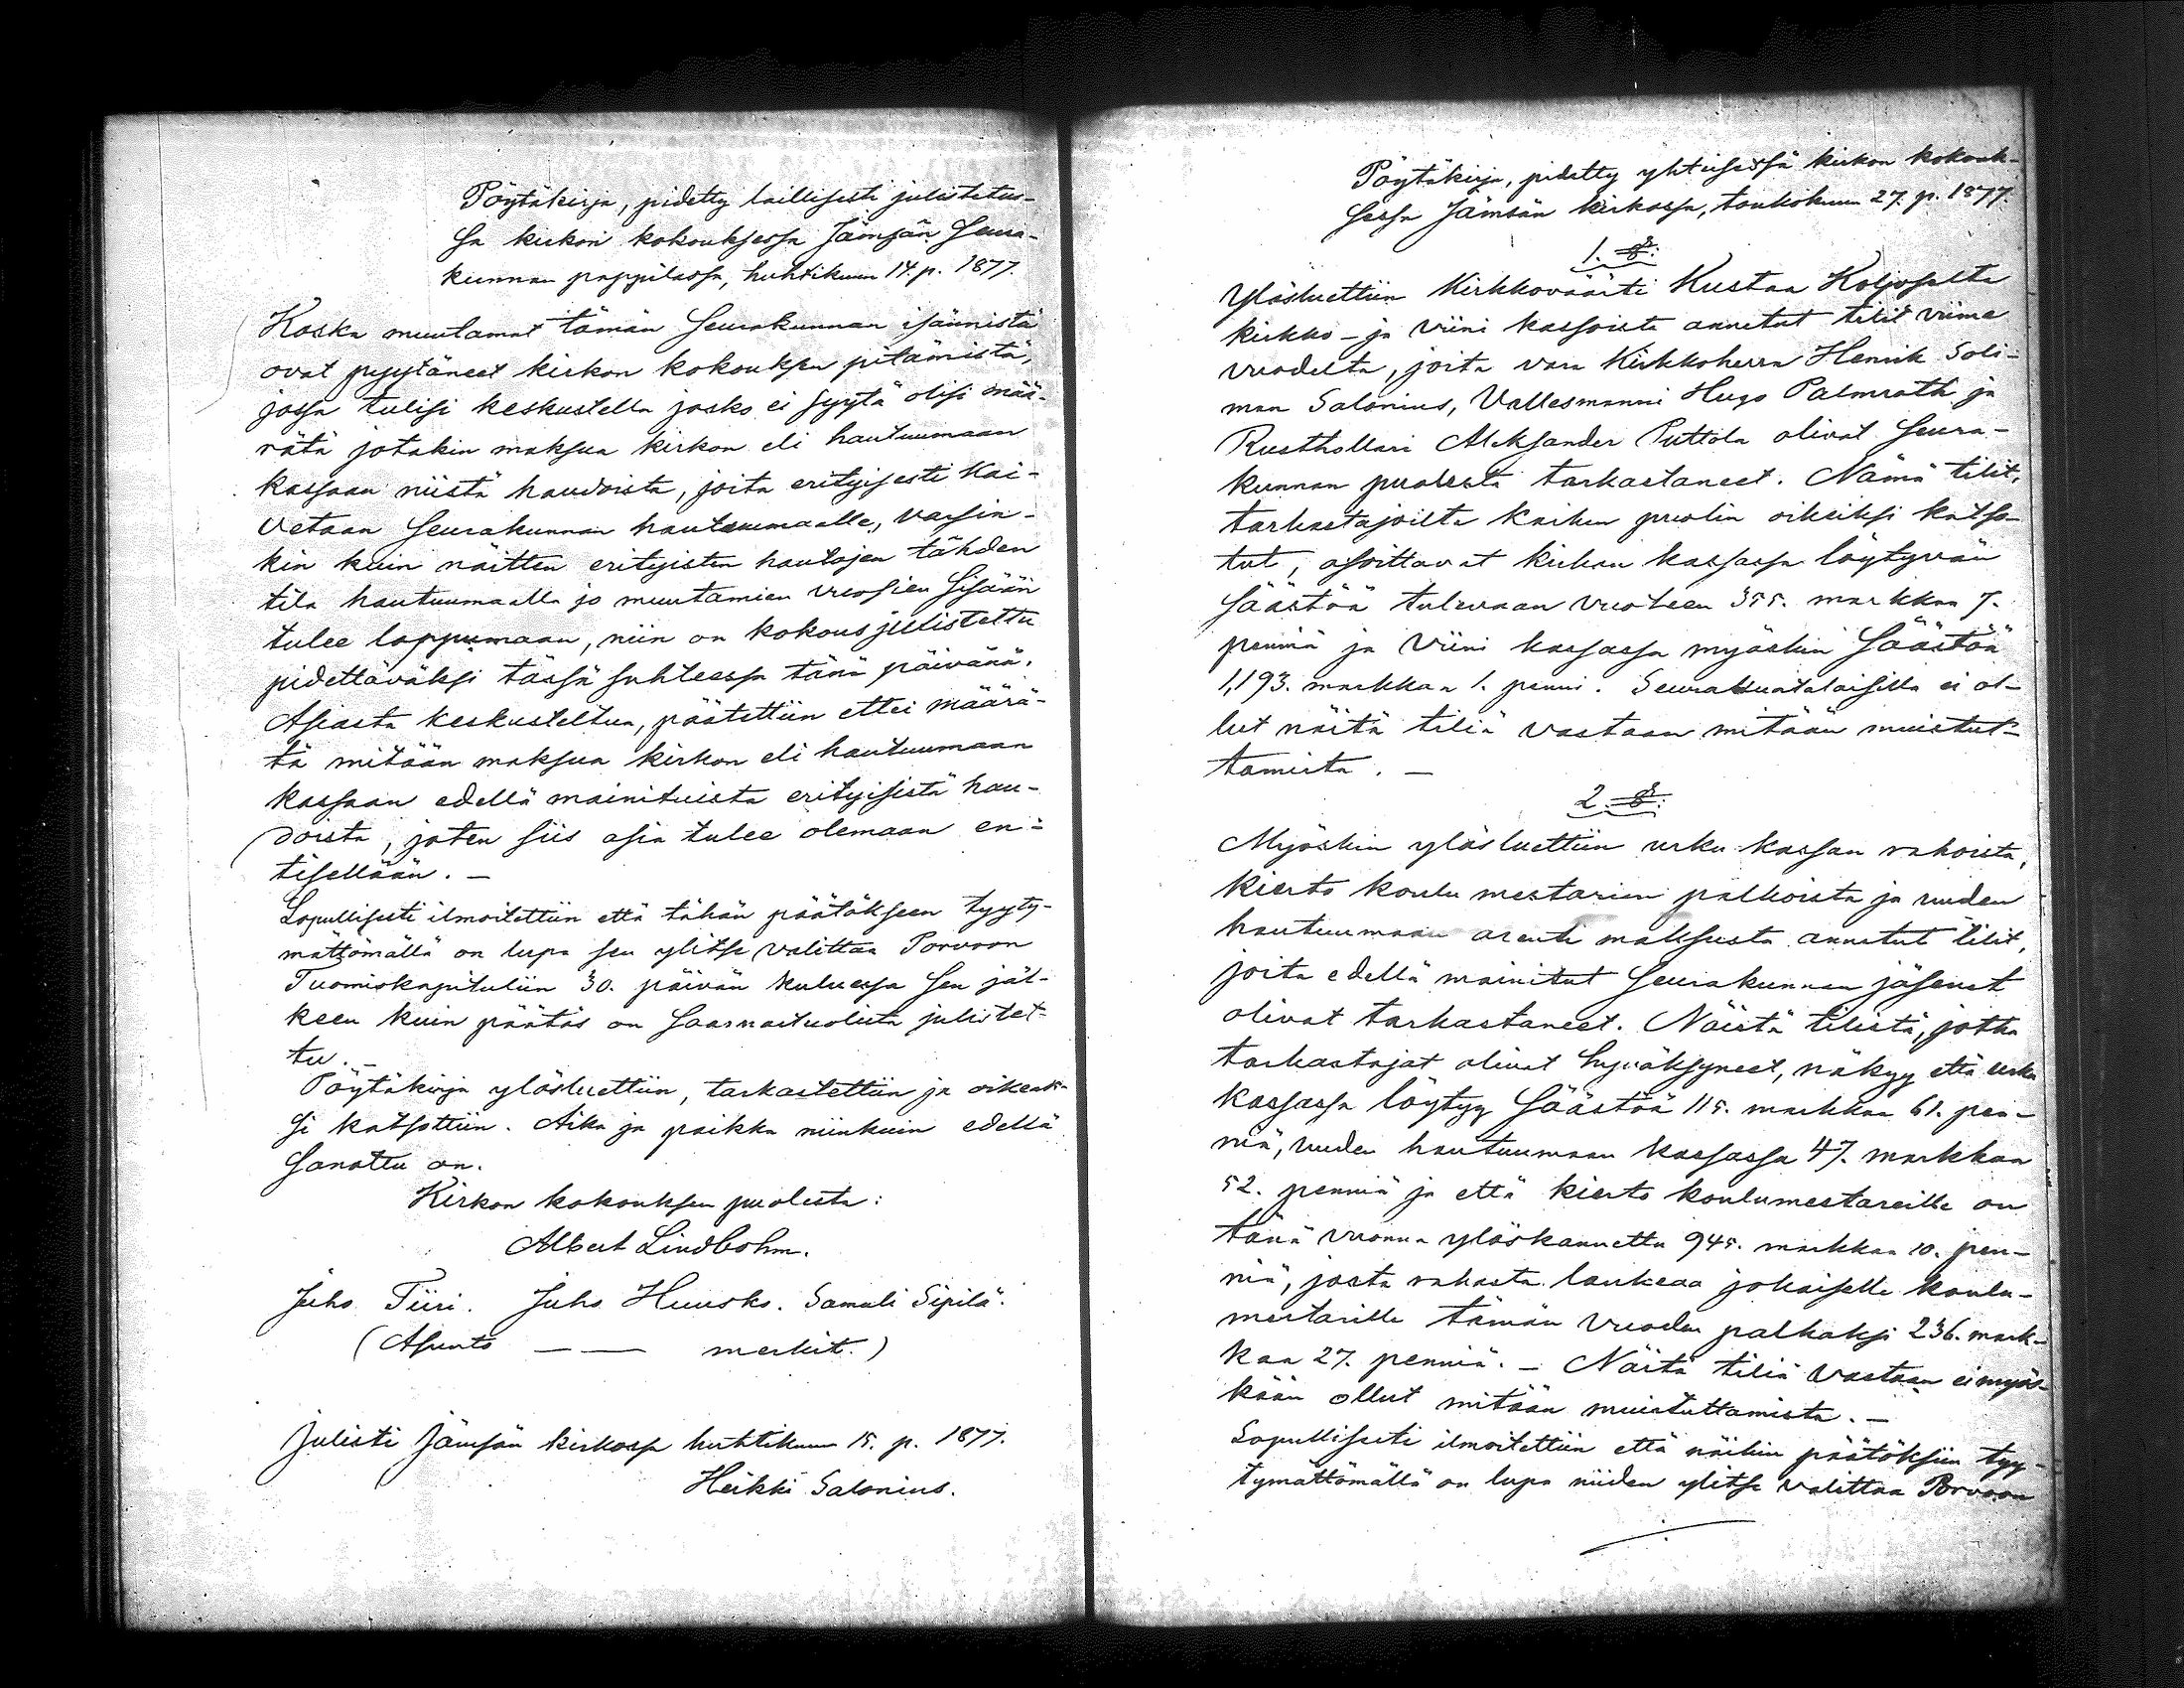 Pöytäkirja, pidetty laillisesti julistetus-
sa kirkon kokouksessa Jämsän Seura-
kunnan pappilassa, huhtikuun 14. p. 1877.
Koska muutamat tämän Seurakunnan isännistä
ovat pyytäneet kirkon kokouksen pitämistä,
jossa tulisi keskustella josko ei syytä olisi mää-
rätä jotakin maksua kirkon eli hautuumaan
kassaan niistä haudoista, joita erityisesti kai-
vetaan Seurakunnan hautuumaalle, varsin-
kin kuin näitten erityisten hautojen tähden
tila hautuumaalla jo muutamien vuosien sisään
tulee loppumaan, niin on kokous julistettu
pidettäväksi tässä suhteessa tänä päivänä.
Asiasta keskusteltua, päätettiin ettei määrä-
tä mitään maksua kirkon eli hautuumaan
kassaan edellä mainituista erityisistä hau-
doista, joten siis asia tulee olemaan en-
tisellään. —
Lopullisesti ilmoitettiin että tähän päätökseen tyyty-
mättömällä on lupa sen ylitse valittaa Porvoon
Tuomiokapituliin 30. päivän kuluessa sen jäl-
keen kuin päätös on saarnatuolista julistet-
tu. —
Pöytäkirja ylösluettiin, tarkastettiin ja oikeak-
si katsottiin. Aika ja paikka niinkuin edellä
sanottu on.
Kirkon kokouksen puolesta:
Albert Lindbohm.
Juho Tiiri. Juho Huusko. Samuli Sipilä.
(Asunto — — merkit.)
Julisti Jämsän kirkossa huhtikuun 15. p. 1877.
Heikki Salonius.
Pöytäkirja, pidetty yhteisessä kirkon kokouk-
sessa Jämsän kirkossa, toukokuun 27. p. 1877.
1. §:
Ylösluettiin Kirkkoväärti Kustaa Koljosalta
kirkko- ja viini kassoista annetut tilit viime
vuodelta, joita vara Kirkkoherra Henrik Soli-
man Salonius, Vallesmanni Hugo Palmroth ja
Rusthollari Aleksander Puttola olivat Seura-
kunnan puolesta tarkastaneet. Nämä tilit,
tarkastajoilta kaiken puolin oikeiksi katso-
tut, osoittavat kirkon kassassa löytyvän
säästöä tulevaan vuoteen 355. markkaa 7.
penniä ja Viini kassassa myöskin säästöä
1,193. markkaa 1. penni. Seurakuntalaisilla ei ol-
lut näitä tiliä vastaan mitään muistut-
tamista. —
2. §:
Myöskin ylösluettiin urku kassan rahoista,
kierto koulu mestarien palkoista ja uuden
hautuumaan arenti maksusta annetut tilit,
joita edellä mainitut Seurakunnan jäsenet
olivat tarkastaneet. Näistä tilistä, jotka
tarkastajat olivat hyväksyneet, näkyy että urku
kassassa löytyy säästöä 115. markkaa 61. pen-
niä, uuden hautuumaan kassassa 47. markkaa
52. penniä ja että kierto koulumestareille on
tänä vuonna ylöskannettu 945. markkaa 10. pen-
niä, josta rahasta lankeaa jokaiselle koulu-
mestarille tämän vuoden palkaksi 236. mark-
kaa 27. penniä. — Näitä tiliä vastaan ei myös-
kään ollut mitään muistuttamista. —
Lopullisesti ilmoitettiin että näihin päätöksiin tyy-
tymättömällä on lupa niiden ylitse valittaa Porvoon